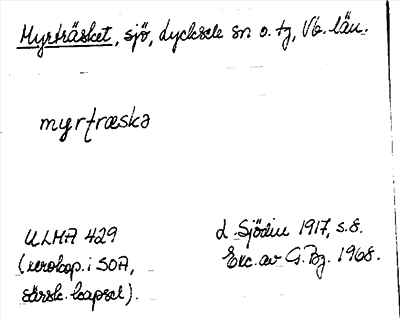 Myrträsket, sjö, Lycksele sn o. tg, Vb. län.
myrtræska
ULMA 429
(xerokop. i SOA,
särsk. kapsel).
d. Sjödin 1917, s. 8.
Exc. av G. Bg. 1968.